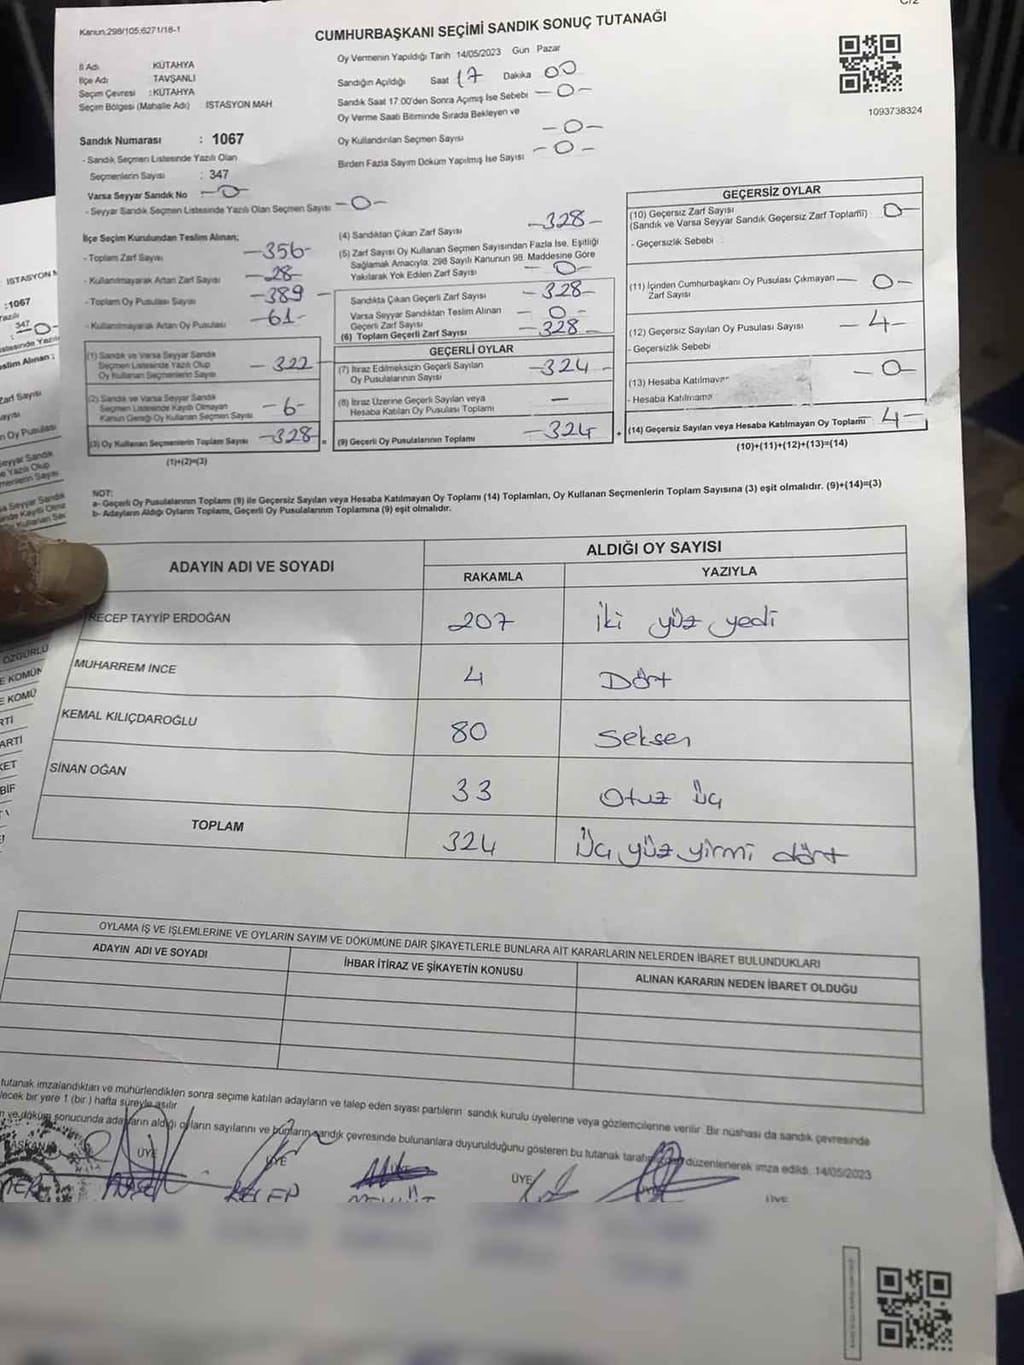 C/2
Kanun,298/105;6271/18-1
CUMHURBAŞKANI SEÇİMİ SANDIK SONUÇ TUTANAĞI
İl Adı : KÜTAHYA
İlçe Adı : TAVŞANLI
Seçim Çevresi : KÜTAHYA
Seçim Bölgesi (Mahalle Adı) İSTASYON MAH
Sandık Numarası : 1067
- Sandık Seçmen Listesinde Yazılı Olan
Seçmenlerin Sayısı : 347
Varsa Seyyar Sandık No -0-
- Seyyar Sandık Seçmen Listesinde Yazılı Olan Seçmen Sayısı -0-
Oy Vermenin Yapıldığı Tarih 14/05/2023 Gün Pazar
Sandığın Açıldığı Saat 17 Dakika 00
Sandık Saat 17:00'den Sonra Açımış İse Sebebi -0-
Oy Verme Saati Bitiminde Sırada Bekleyen ve
Oy Kullandırılan Seçmen Sayısı -0-
Birden Fazla Sayım Döküm Yapılmış İse Sayısı -0-
1093738324
İlçe Seçim Kurulundan Teslim Alınan;
- Toplam Zarf Sayısı -356-
- Kullanılmayarak Artan Zarf Sayısı -28-
- Toplam Oy Pusulası Sayısı -389-
- Kullanılmayarak Artan Oy Pusulası -61-
(1) Sandık ve Varsa Seyyar Sandık
Seçmen Listesinde Yazılı Olup
Oy Kullanan Seçmenlerin Sayısı -322
(2) Sandık ve Varsa Seyyar Sandık
Seçmen Listesinde Kayıtlı Olmayan
Kanun Gereği Oy Kullanan Seçmen Sayısı -6-
(3) Oy Kullanan Seçmenlerin Toplam Sayısı -328-
(1)+(2)=(3)
(4) Sandıktan Çıkan Zarf Sayısı -328-
(5) Zarf Sayısı Oy Kullanan Seçmen Sayısından Fazla İse, Eşitliği
Sağlamak Amacıyla, 298 Sayılı Kanunun 98. Maddesine Göre
Yakılarak Yok Edilen Zarf Sayısı -0-
Sandıkta Çıkan Geçerli Zarf Sayısı -328-
Varsa Seyyar Sandıktan Teslim Alınan
Geçerli Zarf Sayısı -0-
(6) Toplam Geçerli Zarf Sayısı -328-
GEÇERLİ OYLAR
(7) İtiraz Edilmeksizin Geçerli Sayılan
Oy Pusulalarının Sayısı -324-
(8) İtiraz Üzerine Geçerli Sayılan veya
Hesaba Katılan Oy Pusulası Toplamı —
(9) Geçerli Oy Pusulalarının Toplamı -324-
GEÇERSİZ OYLAR
(10) Geçersiz Zarf Sayısı
(Sandık ve Varsa Seyyar Sandık Geçersiz Zarf Toplamı) 0-
- Geçersizlik Sebebi
(11) İçinden Cumhurbaşkanı Oy Pusulası Çıkmayan
Zarf Sayısı 0-
(12) Geçersiz Sayılan Oy Pusulası Sayısı -4-
- Geçersizlik Sebebi
(13) Hesaba Katılmayan -0-
- Hesaba Katılmama
(14) Geçersiz Sayılan veya Hesaba Katılmayan Oy Toplamı 4-
(10)+(11)+(12)+(13)=(14)
NOT:
a- Geçerli Oy Pusulalarının Toplamı (9) ile Geçersiz Sayılan veya Hesaba Katılmayan Oy Toplamı (14) Toplamları, Oy Kullanan Seçmenlerin Toplam Sayısına (3) eşit olmalıdır. (9)+(14)=(3)
b- Adayların Aldığı Oyların Toplamı, Geçerli Oy Pusulalarının Toplamına (9) eşit olmalıdır.
ADAYIN ADI VE SOYADI ALDIĞI OY SAYISI
RAKAMLA YAZIYLA
RECEP TAYYİP ERDOĞAN 207 İki yüz yedi
MUHARREM İNCE 4 Dört
KEMAL KILIÇDAROĞLU 80 Seksen
SİNAN OĞAN 33 Otuz üç
TOPLAM 324 Üç yüz yirmi dört
OYLAMA İŞ VE İŞLEMLERİNE VE OYLARIN SAYIM VE DÖKÜMÜNE DAİR ŞİKAYETLERLE BUNLARA AİT KARARLARIN NELERDEN İBARET BULUNDUKLARI
ADAYIN ADI VE SOYADI İHBAR İTİRAZ VE ŞİKAYETİN KONUSU ALINAN KARARIN NEDEN İBARET OLDUĞU
tutanak imzalandıktan ve mühürlendikten sonra seçime katılan adayların ve talep eden siyasi partilerin sandık kurulu üyelerine veya gözlemcilerine verilir. Bir nüshası da sandık çevresinde
lecek bir yere 1 (bir ) hafta süreyle asılır.
n ve döküm sonucunda adayların aldığı oyların sayılarını ve bunların sandık çevresinde bulunanlara duyurulduğunu gösteren bu tutanak düzenlenerek imza edildi. 14/05/2023
BAŞKAN ÜYE ÜYE ÜYE ÜYE
RECEP